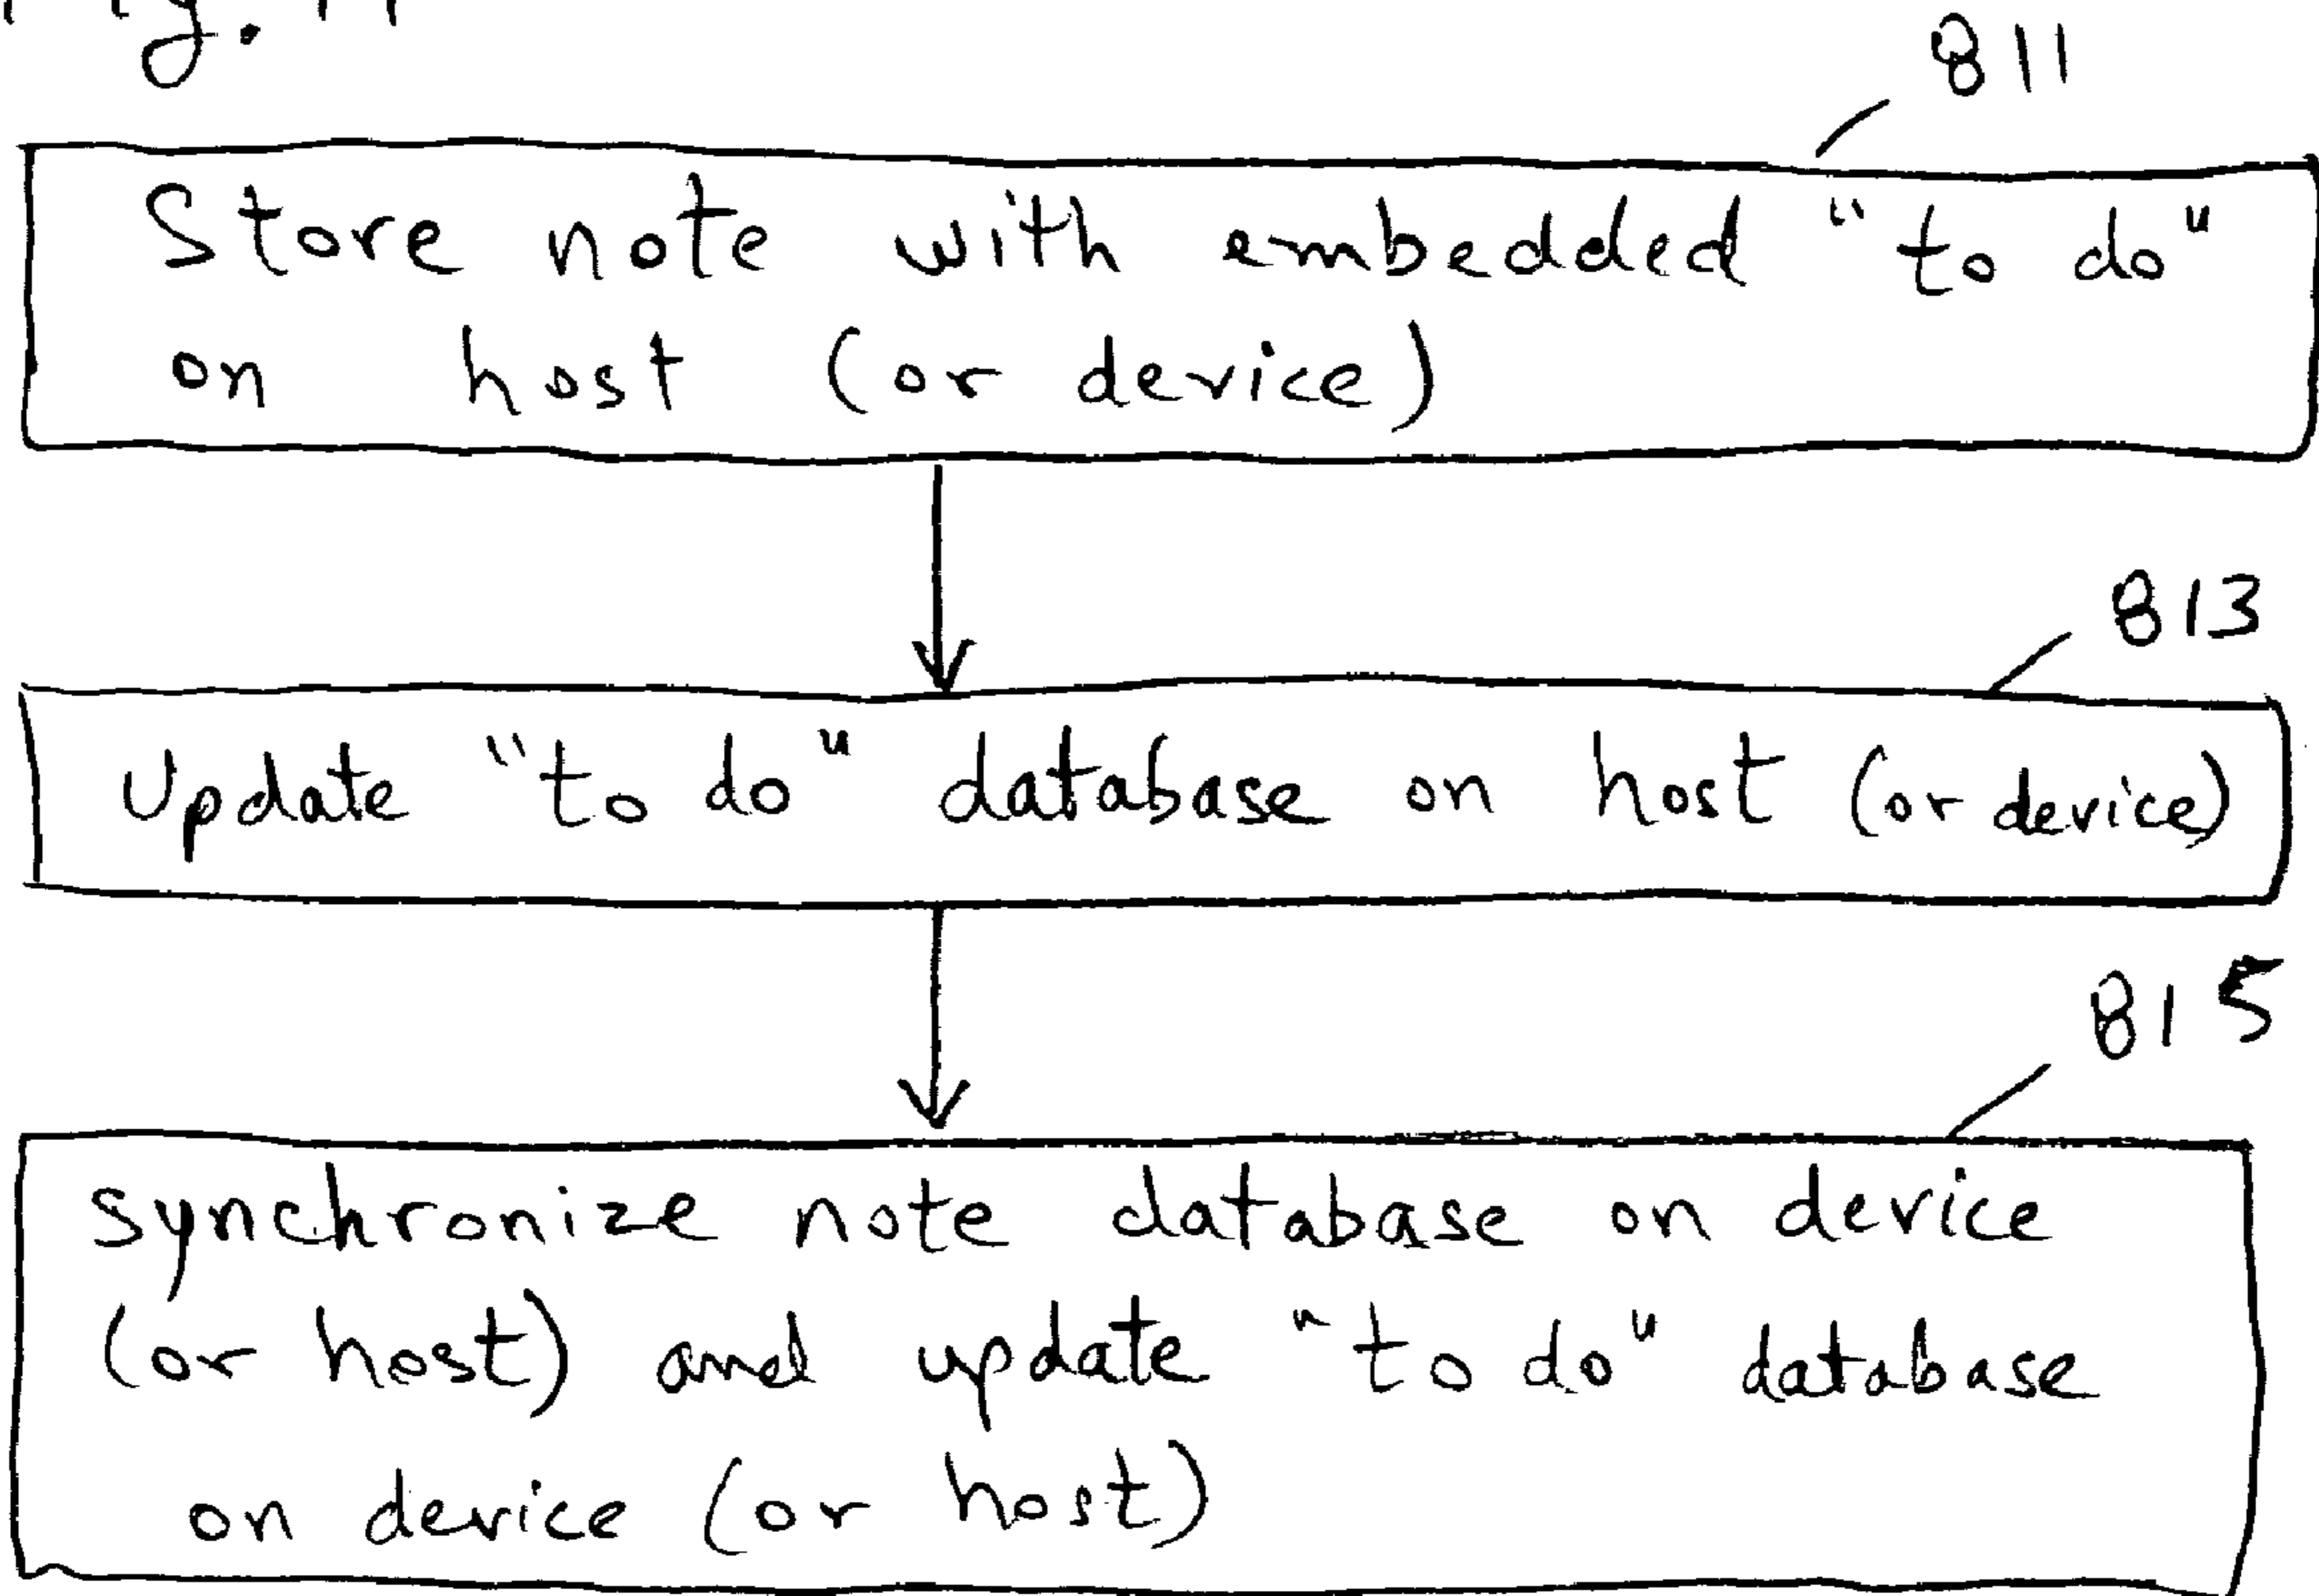 811
Store note with embedded "to do"
on host (or device)
813
Update "to do" database on host (or device)
815
synchronize note database on device
(or host) and update "to do" database
on device (or host)